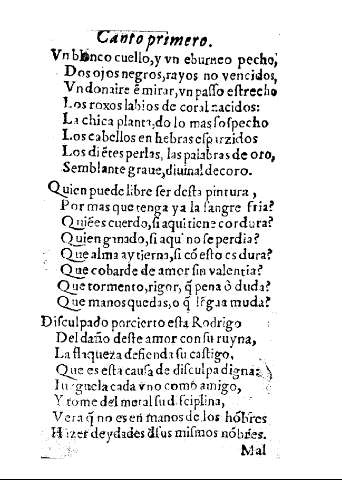 Canto primero.
Vn blanco cuello, y vn eburneo pecho,
Dos ojos negros, rayos no vencidos,
Vn donaire ẽ mirar, vn passo estrecho
Los roxos labios de coral nacidos:
La chica planta, do lo mas sospecho
Los cabellos en hebras esparzidos
Los diẽtes perlas, las palabras de oro,
Semblante graue, diuinal decoro.
Quien puede libre ser desta pintura,
Por mas que tenga ya la sangre fria?
Quiẽ es cuerdo, si aqui tiene cordura?
Quien ganado, si aqui no se perdia?
Que alma ay tierna, si cõ esto es dura?
Que cobarde de amor sin valentia?
Que tormento, rigor, q̃ pena o duda?
Que manos quedas, o q̃ lẽgua muda?
Disculpado por cierto esta Rodrigo
Del daño deste amor con su ruyna,
La flaqueza defienda su castigo,
Que es esta causa de disculpa digna:
Iuzguela cada vno como amigo,
Y tome del moral su disciplina,
Vera q̃ no es en manos de los hõbres
Hazer deydades d̃ sus mismos nõbres.
Mal